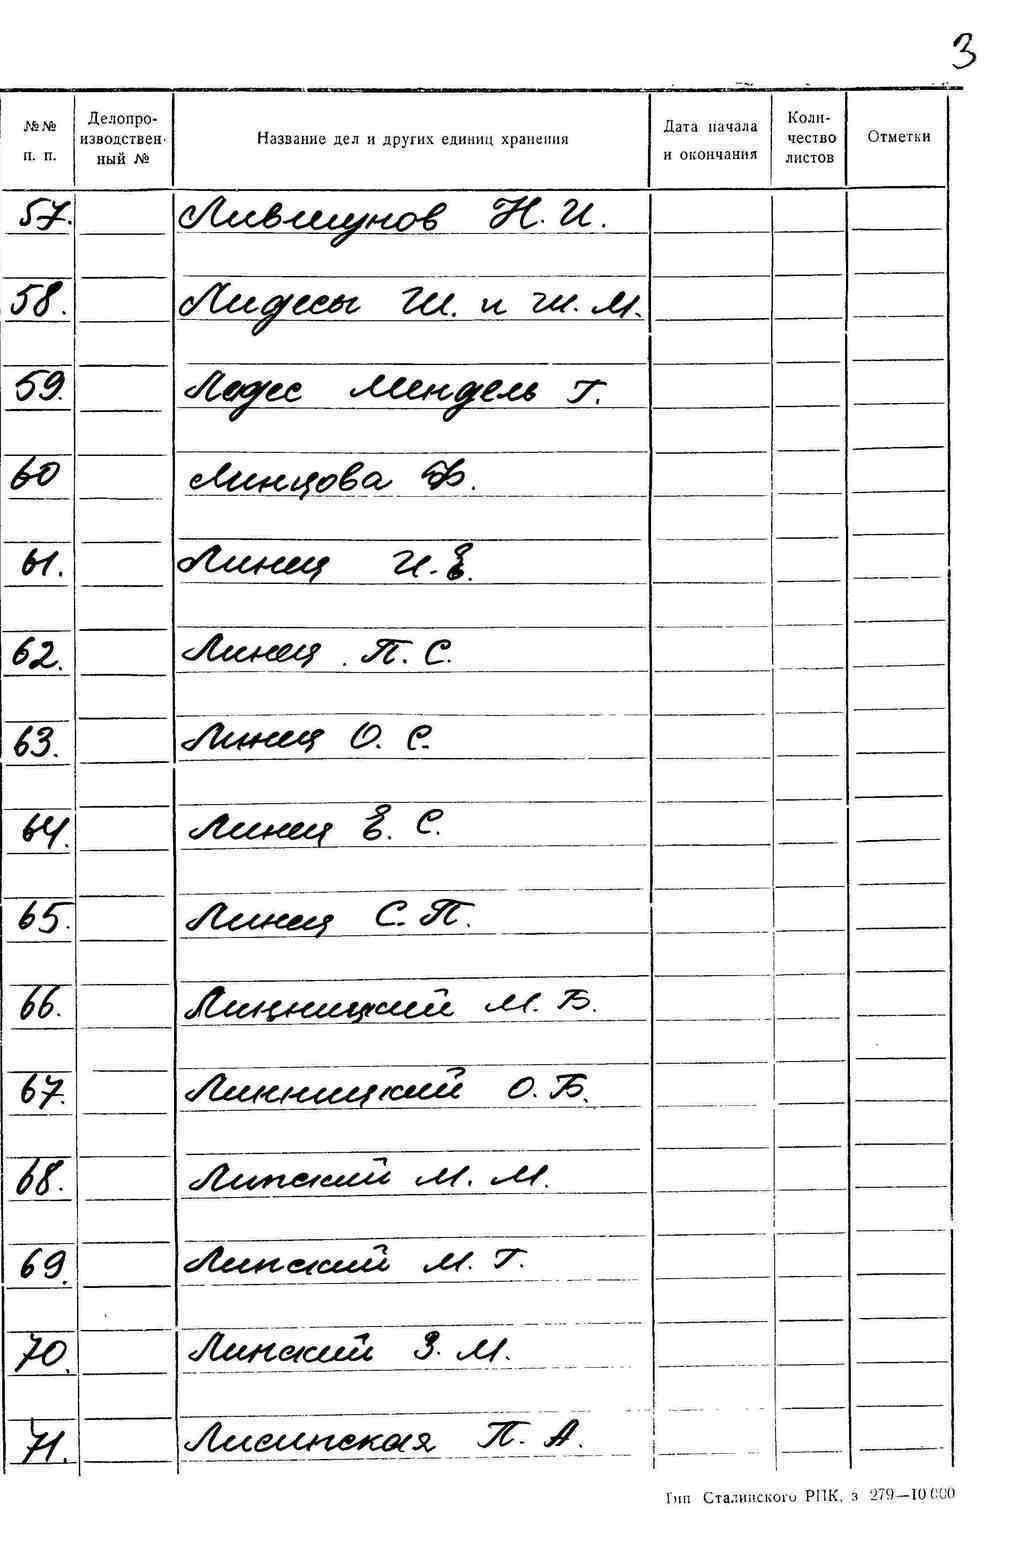 3
№№ п. п. Делопроизводственный № Название дел и других единиц хранения Дата начала и окончания Количество листов Отметки
57. Лившунов Н. И.
58. Лидесы Ш. и Ш. М.
59. Ледес Мендель Г.
60 Линцова Ф.
61. Линец И. Е.
62. Линец П. С.
63. Линец О. С.
64. Линец Е. С.
65. Линец С. П.
66. Линницкий М. Б.
67. Линницкий О. Б.
68. Липский М. М.
69. Липский М. Г.
70. Линский З. М.
71. Лисинская П. А.
Тип Сталинского РПК, з 279—10000